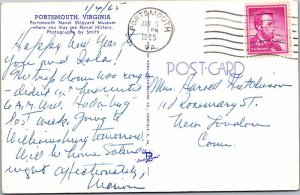 1/4/65
PORTSMOUTH, VIRGINIA
Portsmouth Naval Shipyard Museum
where you may see Naval History.
Photography by Smith
Happy New Year,
you and Lola!
home was
didn't go
6 A.M. Wed. Had a bug
last week. Going to
Williamsburg tomorrow,
will be home Saturday
night affectionately,
Marion
PORTSMOUTH
JAN 5
PM
1965
VA.
POST CARD
Mrs. Harold Hutchinson
11 Rosemary St.
New London
Conn.